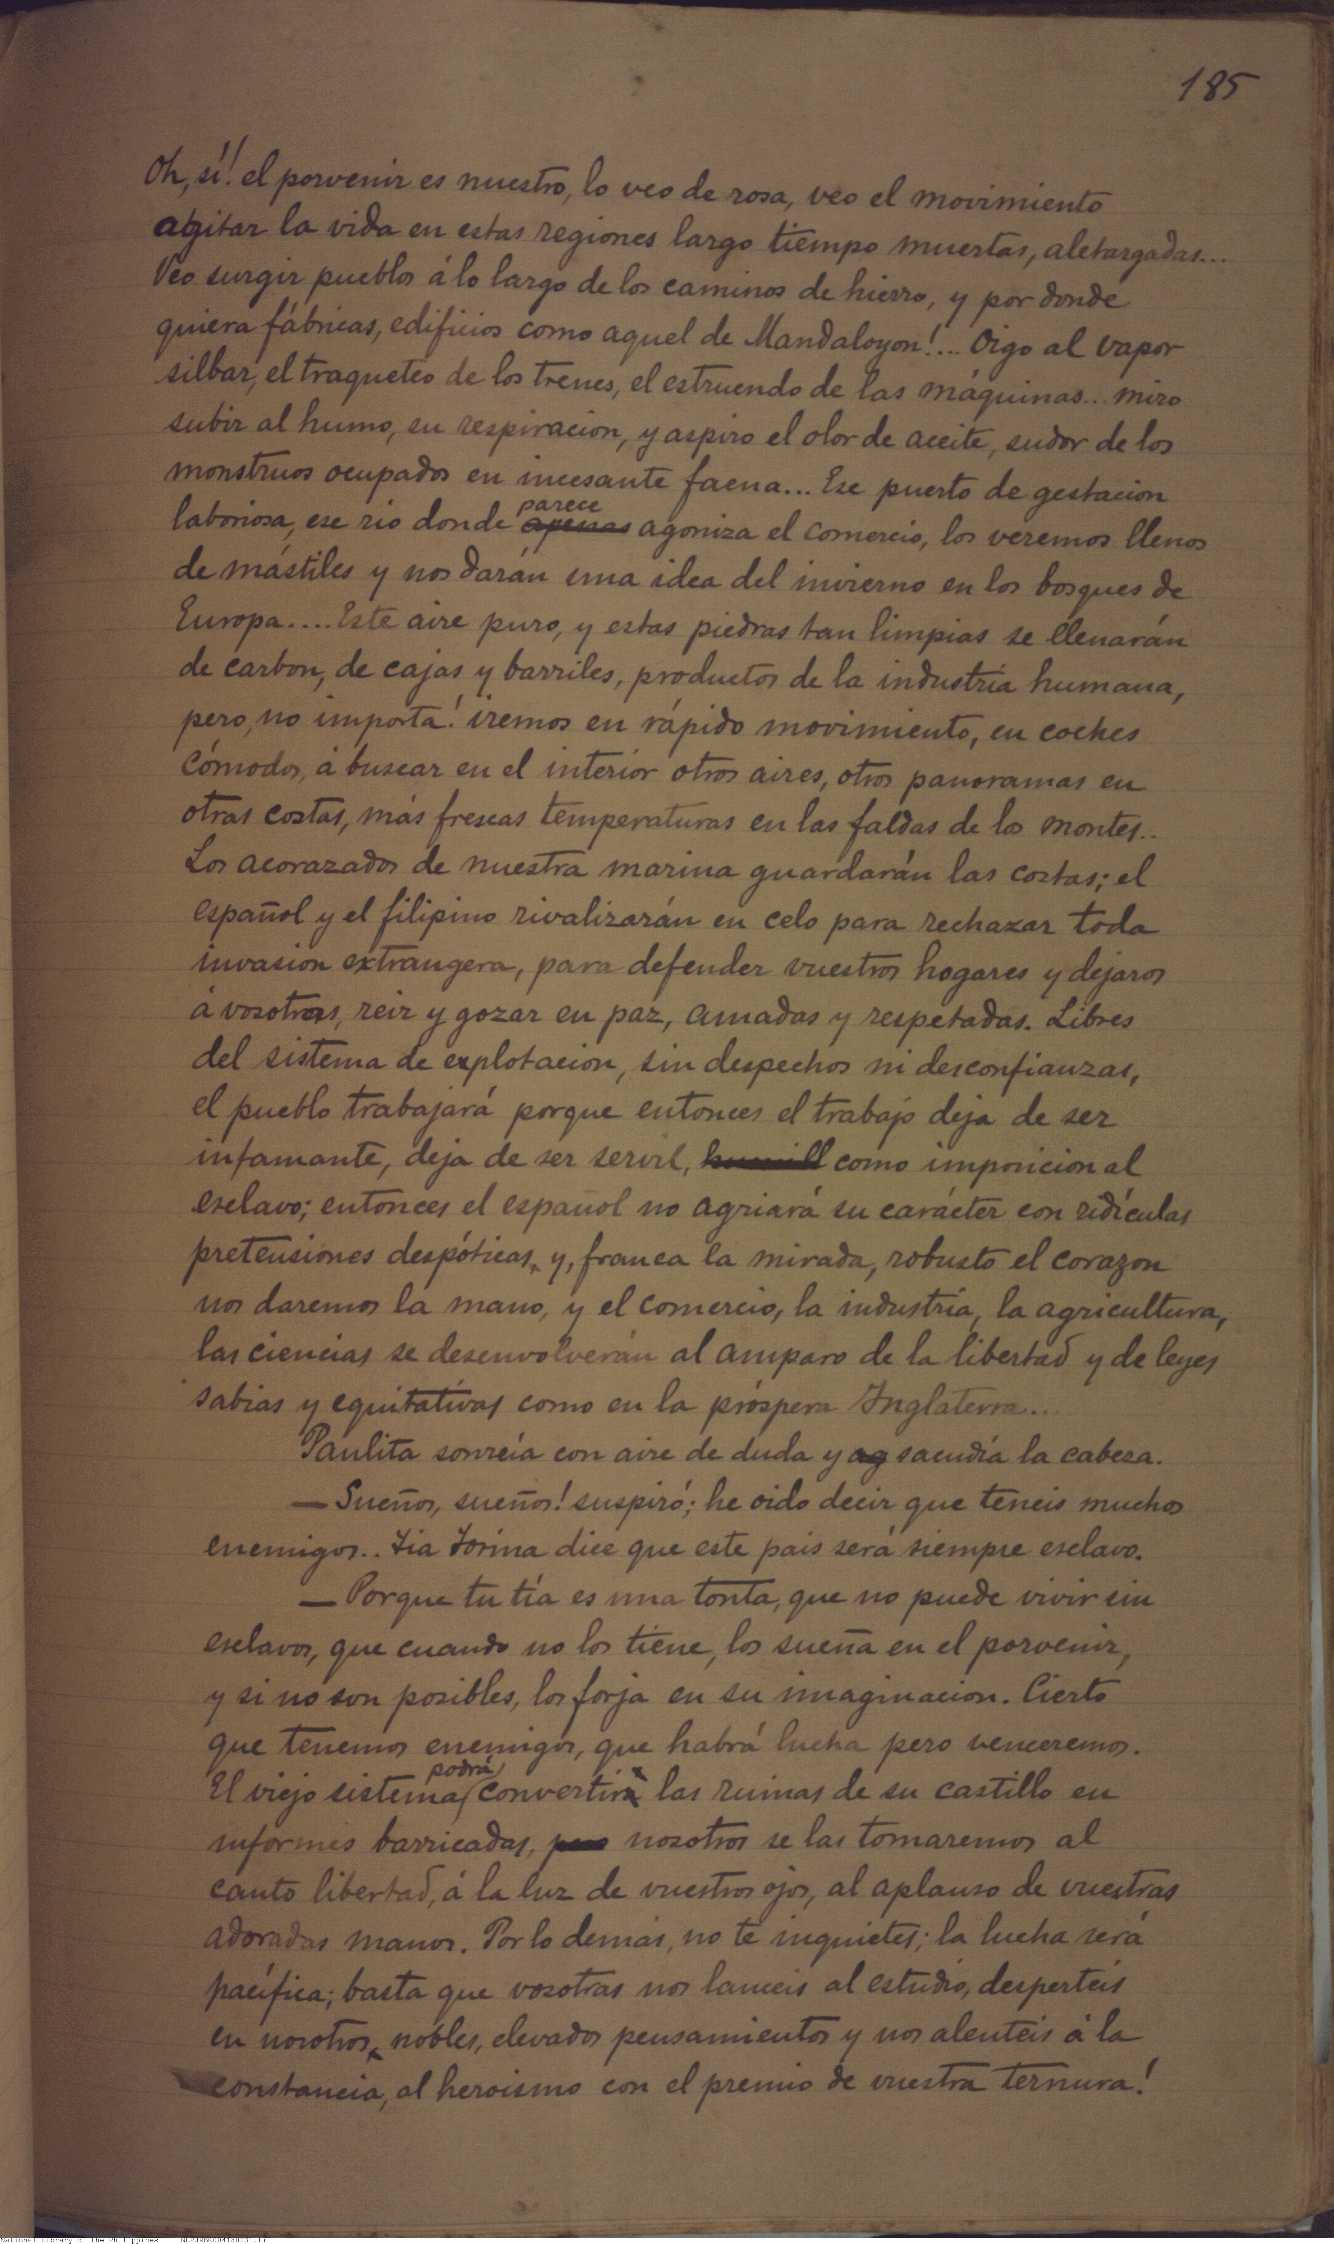 185
Oh, sí! el porvenir es nuestro, lo veo de rosa, veo el movimiento
agitar la vida en estas regiones largo tiempo muertas, aletargadas...
Veo surgir pueblos á lo largo de los caminos de hierro, y por donde
quiera fábricas, edificios como aquel de Mandaloyon!... Oigo al vapor
silbar, el traqueteo de los trenes, el estruendo de las máquinas... miro
subir al humo, su respiracion, y aspiro el olor de aceite, sudor de los
monstruos ocupados en incesante faena... Ese puerto de gestacion
parece
laboriosa, ese rio donde apenas agoniza el comercio, los veremos llenos
de mástiles y nos darán una idea del invierno en los bosques de
Europa.... Este aire puro, y estas piedras tan limpias se llenarán
de carbon, de cajas y barriles, productos de la industria humana,
pero, no importa! iremos en rápido movimiento, en coches
cómodos, á buscar en el interior otros aires, otros panoramas en
otras costas, más frescas temperaturas en las faldas de los montes..
Los acorazados de nuestra marina guardarán las costas; el
español y el filipino rivalizarán en celo para rechazar toda
invasion extrangera, para defender vuestros hogares y dejaros
á vosotras, reir y gozar en paz, amadas y respetadas. Libres
del sistema de explotacion, sin despechos ni desconfianzas,
el pueblo trabajará porque entonces el trabajo deja de ser
infamante, deja de ser servil, humill como imposicion al
esclavo; entonces el español no agriará su carácter con ridículas
pretensiones despóticas, y, franca la mirada, robusto el corazon
nos daremos la mano, y el comercio, la industria, la agricultura,
las ciencias se desenvolverán al amparo de la libertad y de leyes
sabias y equitativas como en la próspera Inglaterra...
Paulita sonreía con aire de duda y ag sacudía la cabeza.
—Sueños, sueños! suspiró; he oido decir que teneis muchos
enemigos.. Tia Torina dice que este pais será siempre esclavo.
—Porque tu tía es una tonta, que no puede vivir sin
esclavos, que cuando no los tiene, los sueña en el porvenir,
y si no son posibles, los forja en su imaginacion. Cierto
que tenemos enemigos, que habrá lucha pero venceremos.
podrá
El viejo sistema convertir las ruinas de su castillo en
informes barricadas, pero nosotros se las tomaremos al
canto libertad, á la luz de vuestros ojos, al aplauso de vuestras
adoradas manos. Por lo demás, no te inquietes; la lucha será
pacífica; basta que vosotras nos lanceis al estudio, desperteis
en nosotros, nobles, elevados pensamientos y nos alenteis á la
constancia, al heroismo con el premio de vuestra ternura!